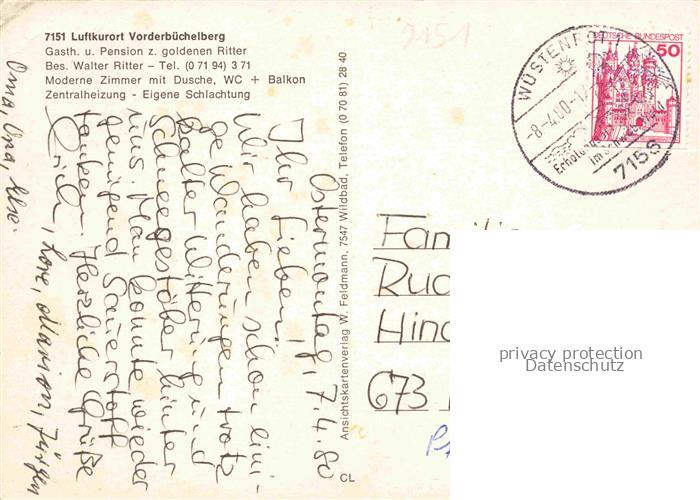 7151 Luftkurort Vorderbüchelberg
Gasth. u. Pension z. goldenen Ritter
Bes. Walter Ritter – Tel. (0 71 94) 3 71
Moderne Zimmer mit Dusche, WC + Balkon
Zentralheizung - Eigene Schlachtung
7151
Ostermontag, 7.4.80
Ihr Lieben,
Wir haben schon eini-
ge Wanderungen trotz
kalter Witterung und
Schneegestöber hinter
uns. Man konnte wieder
genügend Sauerstoff
tanken. Herzliche Grüße
Erich, Lore, Marion, Jürgen
Oma, Opa, Else.
Ansichtskartenverlag W. Feldmann, 7547 Wildbad, Telefon (0 70 81) 28 40
CL
WÜSTENROT
-8-4.80-1
Erholung
im Schwäb. Wald
7156
DEUTSCHE BUNDESPOST
50
Fami
Rud
Hind
673
privacy protection
Datenschutz